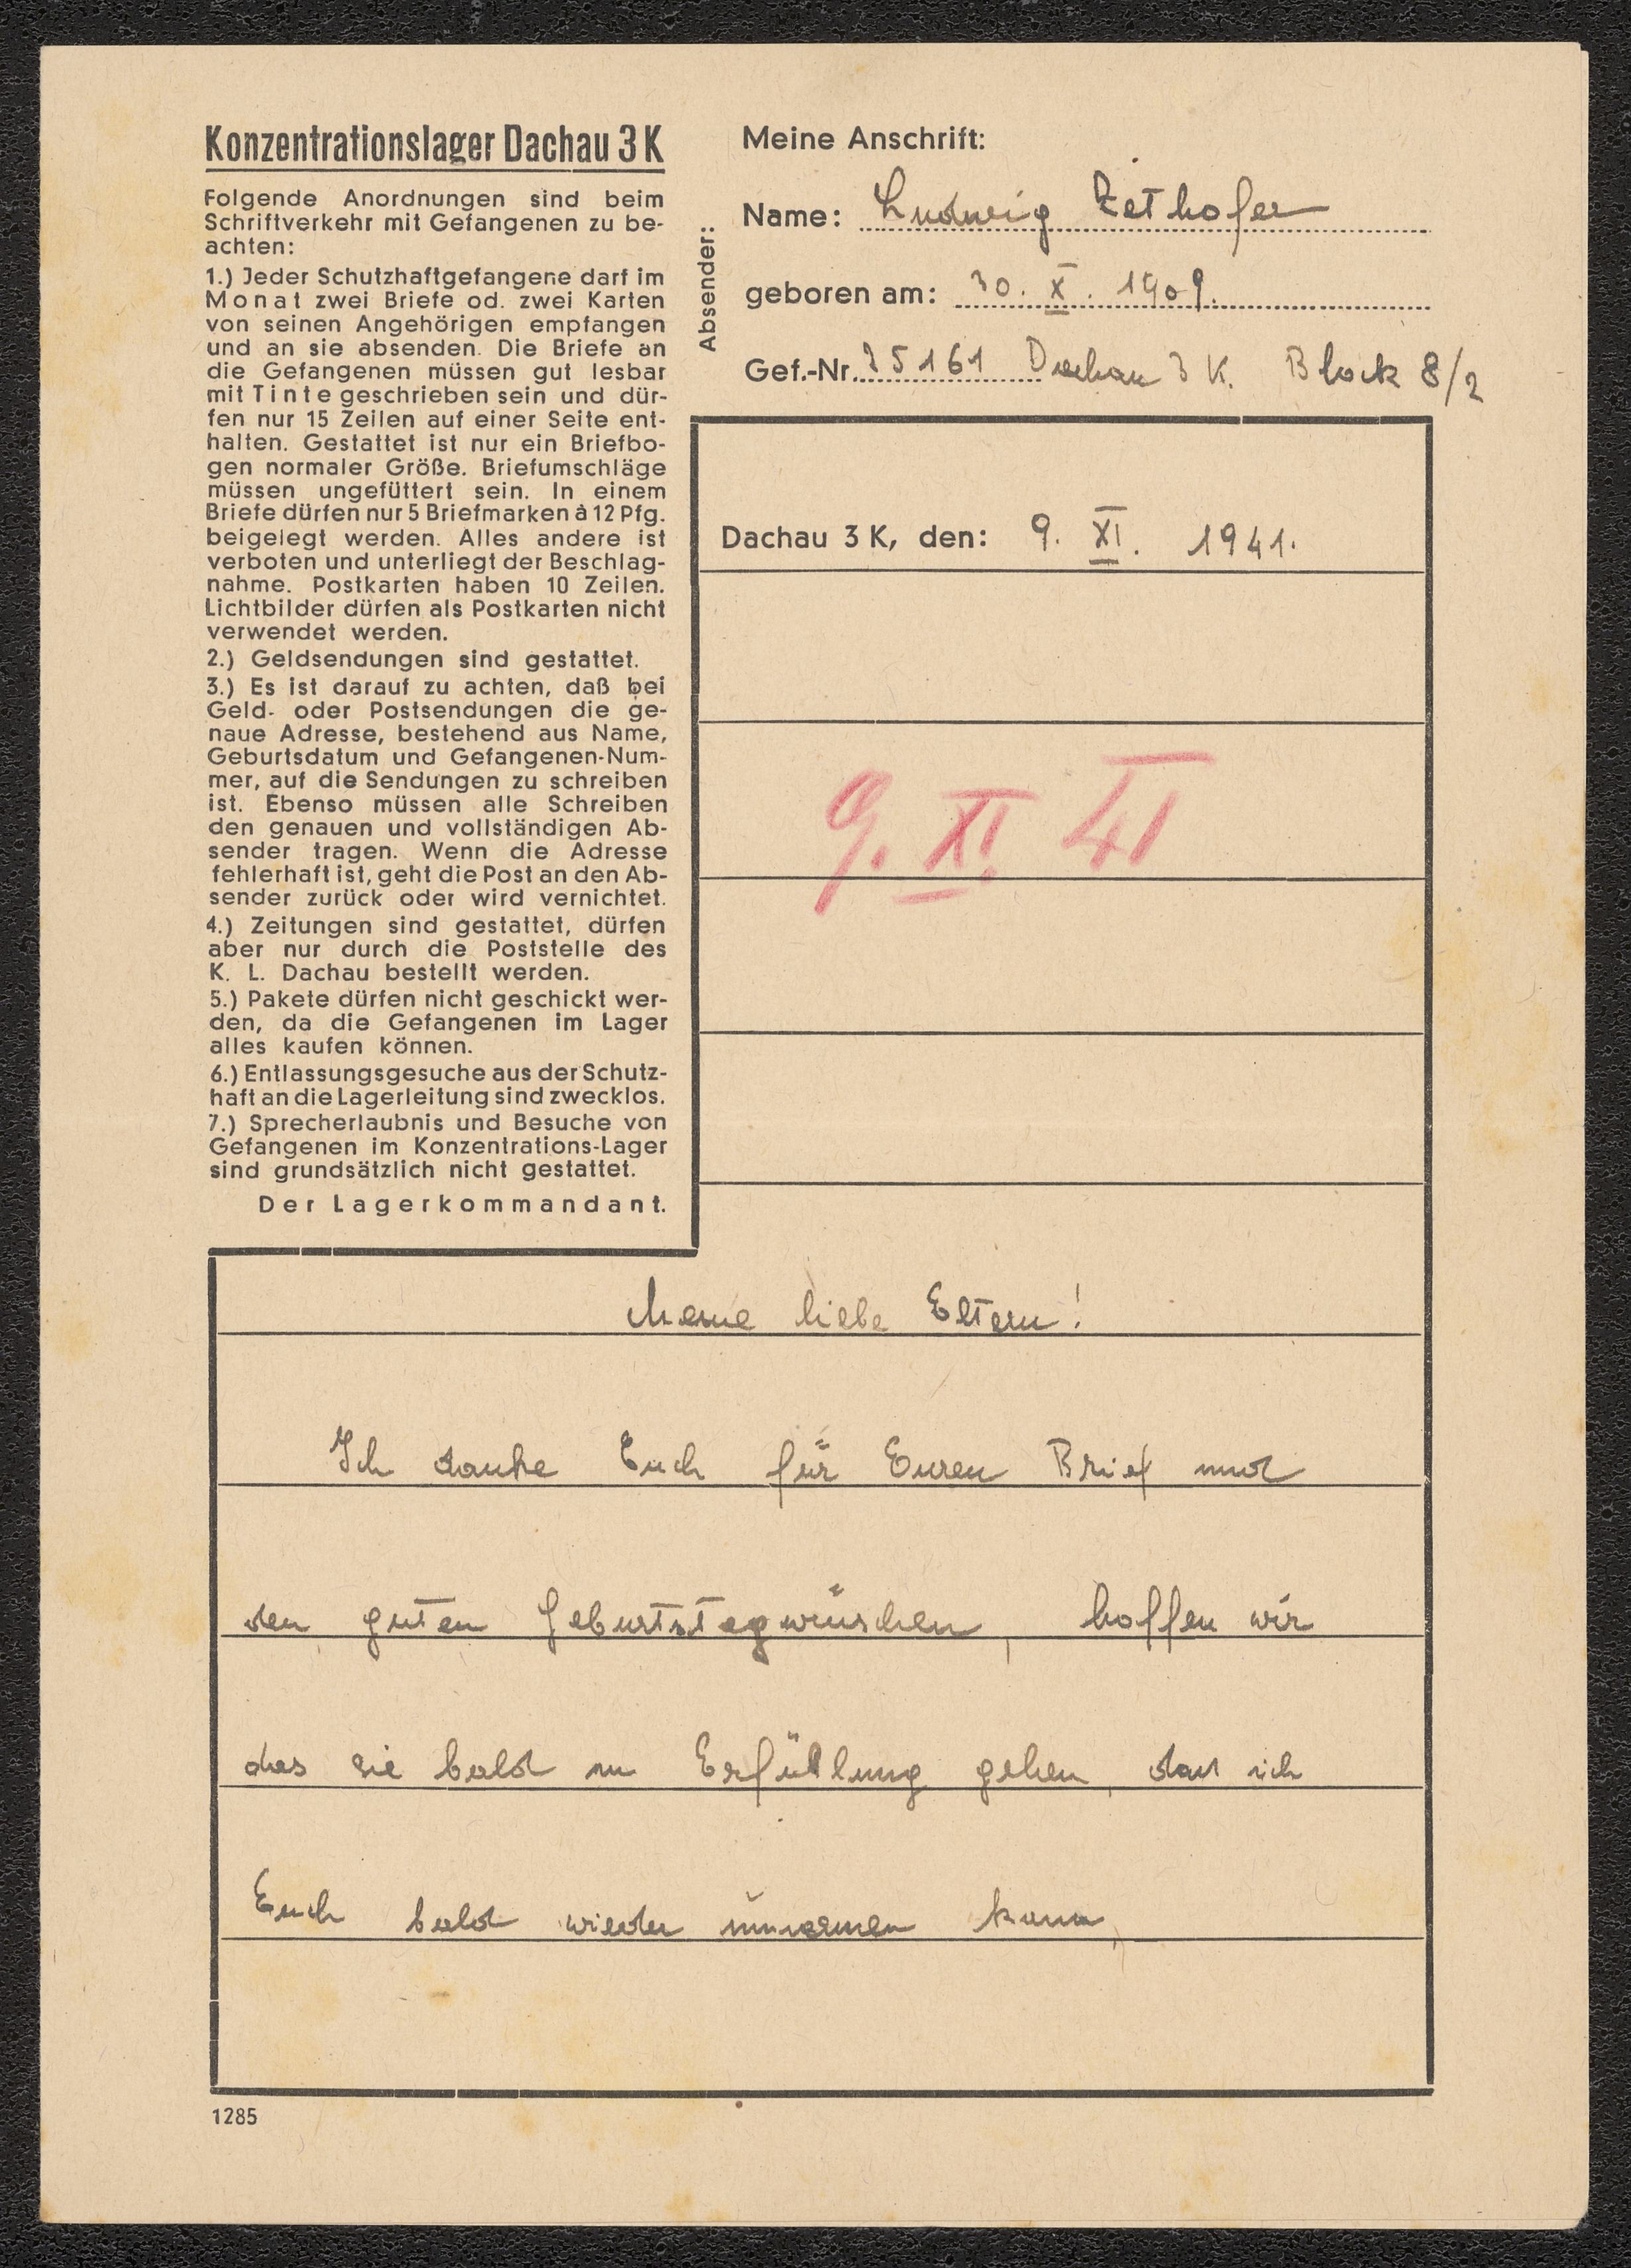 Konzentrationslager Dachau 3 K
Folgende Anordnungen sind beim
Schriftverkehr mit Gefangenen zu be-
achten:
1.) Jeder Schutzhaftgefangene darf im
Monat zwei Briefe od. zwei Karten
von seinen Angehörigen empfangen
und an sie absenden. Die Briefe an
die Gefangenen müssen gut lesbar
mit Tinte geschrieben sein und dür-
fen nur 15 Zeilen auf einer Seite ent-
halten. Gestattet ist nur ein Briefbo-
gen normaler Größe. Briefumschläge
müssen ungefüttert sein. In einem
Briefe dürfen nur 5 Briefmarken à 12 Pfg.
beigelegt werden. Alles andere ist
verboten und unterliegt der Beschlag-
nahme. Postkarten haben 10 Zeilen.
Lichtbilder dürfen als Postkarten nicht
verwendet werden.
2.) Geldsendungen sind gestattet.
3.) Es ist darauf zu achten, daß bei
Geld- oder Postsendungen die ge-
naue Adresse, bestehend aus Name,
Geburtsdatum und Gefangenen-Num-
mer, auf die Sendungen zu schreiben
ist. Ebenso müssen alle Schreiben
den genauen und vollständigen Ab-
sender tragen. Wenn die Adresse
fehlerhaft ist, geht die Post an den Ab-
sender zurück oder wird vernichtet.
4.) Zeitungen sind gestattet, dürfen
aber nur durch die Poststelle des
K. L. Dachau bestellt werden.
5.) Pakete dürfen nicht geschickt wer-
den, da die Gefangenen im Lager
alles kaufen können.
6.) Entlassungsgesuche aus der Schutz-
haft an die Lagerleitung sind zwecklos.
7.) Sprecherlaubnis und Besuche von
Gefangenen im Konzentrations-Lager
sind grundsätzlich nicht gestattet.
Der Lagerkommandant.
Absender:
Meine Anschrift:
Name: Ludwig Zethofer
geboren am: 30. X. 1909.
Gef.-Nr. 25161 Dachau 3 K. Block 8/2
Dachau 3 K, den: 9. XI. 1941.
9. XI. 41
Meine liebe Eltern!
Ich danke Euch für Euren Brief und
den guten Geburtstagwünschen, hoffen wir
das sie bald in Erfüllung gehen, das ich
Euch bald wieder umarmen kann,
1285